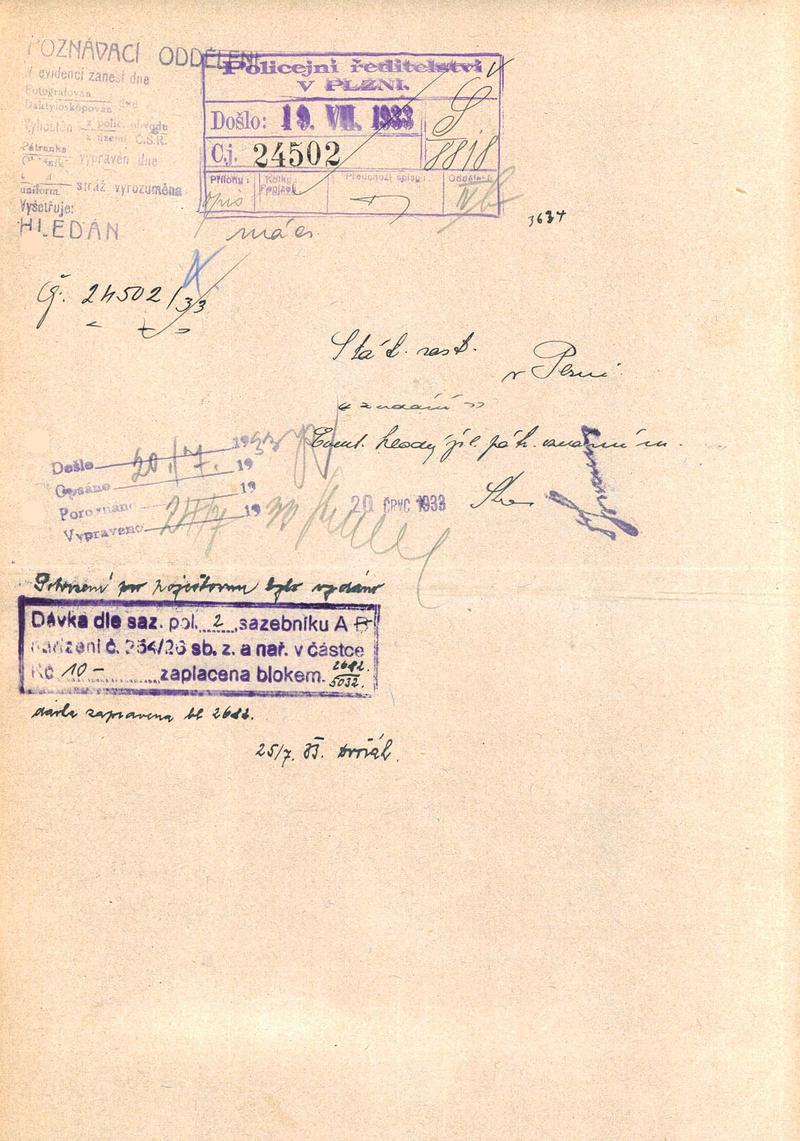 POZNÁVACÍ ODDĚLENÍ
V evidenci zanesl dne
Fotografován
Daktyloskopován dne
Vyhoštěn z polic. obvodu
z území Č.S.R.
Pátranka
vypraven dne
uniform. stráž vyrozuměna
Vyšetřuje:
HLEDÁN
Policejní ředitelství
V PLZNI.
Došlo: 19. VII. 1933
Čj. 24502
S
8818
Přílohy: Kolky: Předchozí spisy: Oddělení:
IVb
3637
Č: 24502/33
Stát. zast.
v Plzni
Došlo 20./7. 1933
Opsáno 19
Porovnáno 19
Vypraveno 19
20 ČRVC 1933
Potvrzení pro pojišťovnu bylo vydáno
Dávka dle saz. pol. 2 sazebníku A B
nařízení č. 254/26 sb. z. a nař. v částce
Kč 10- zaplacena blokem. 2682. 5032.
zapravena bl 2682.
25/7. 33. Dvořák.